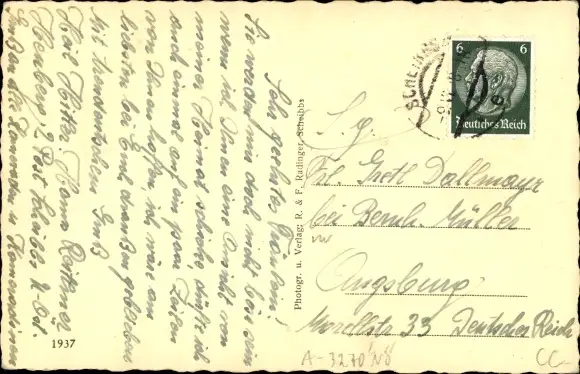 Sehr geehrtes Fräulein!
Sie werden mir doch nicht bös sein
wenn ich Ihnen eine Ansicht von
meiner Heimat schicke, dürfte ich
auch einmal auf ein paar Zeilen
von Ihnen hoffen, ich wäre am
liebsten bei Euch draußen geblieben
Mit treudeutschen Gruß
Heil Hitler, Hanna
2 Post N.Öd.
1937
Photogr. u. Verlag: R. & F. Radinger, Scheibbs
6 6
Deutsches Reich
S. g.
Frl. Gretl Dallmayr
bei Bernh. Müller
Augsburg
Morellstr 33 Deutsches Reich
A-3270 NÖ
CC-